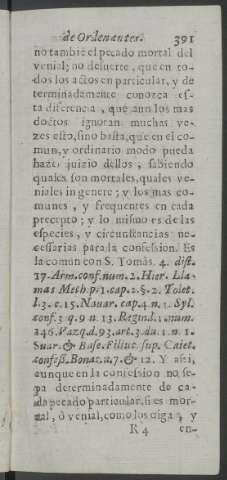 de Ordenantes. 391
no tambiē el pecado mortal del
venial; no desuerte, que en to-
dos los actos en particular, y de
terminadamente conozca es-
ta diferencia, que aun los mas
doctos ignoran muchas ve-
zes esto, sino basta, que en el co-
mun, y ordinario modo pueda
hazer juizio dellos, sabiendo
quales son mortales, quales ve-
niales in genere; y los mas co-
munes, y frequentes en cada
precepto; y lo mismo es de las
especies, y circunstancias ne-
cessarias para la confession. Es
la comun con S. Tomàs. 4. dist.
17. Arm. conf. num. 2. Hier. Lla-
mas Meth. p. 1. cap. 2. §. 2. Tolet.
l. 3. c. 15. Nauar. cap. 4. n. 1. Syl.
conf. 3. q. 9. n. 13. Regind. 1. num.
246. Vazq. d. 93. art. 3. du. 1. n. 1.
Suar. & Base. Filiuc. sup. Caiet.
confess. Bonac. u. 7. & 12. Y assi,
aunque en la confession no se-
pa determinadamente de ca-
da pecado particular, si es mor-
tal, ò venial, como los diga, y
R 4 en-